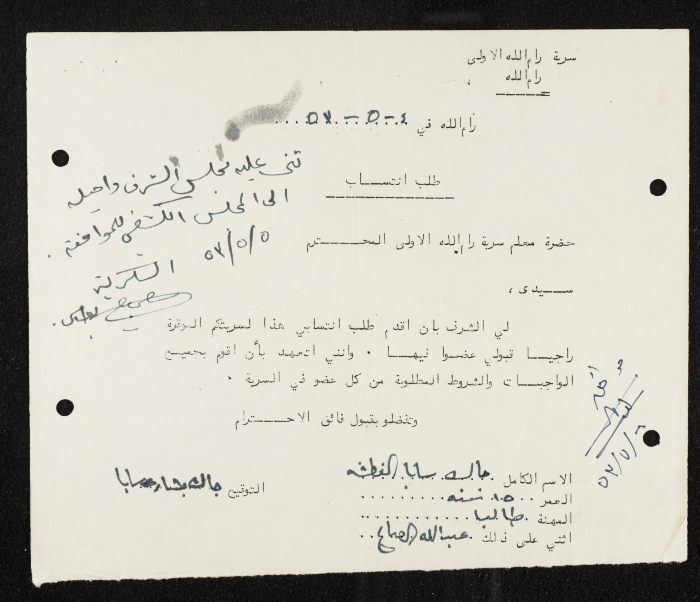 سرية رام الله الاولى
رام الله
رام الله في ٤-٥-٥٣
طلب انتساب
حضرة معلم سرية رام الله الاولى المحترم
سيدى ،
لي الشرف بان اقدم طلب انتسابي هذا لسريتكم الموقرة
راجيا قبولي عضوا فيها . وانني اتعهد بأن اقوم بجميع
الواجبات والشروط المطلوبة من كل عضو في السرية .
وتفضلو بقبول فائق الاحترام
الاسم الكامل جاك سابا
العمر ١٥ سنه
المهنة طالب
اثني على ذلك عبدالله
التوقيع جاك سابا
ثني عليه مجلس الشرف واحيله
الى المجلس الكشفي للموافقة .
٥٣/٥/٥